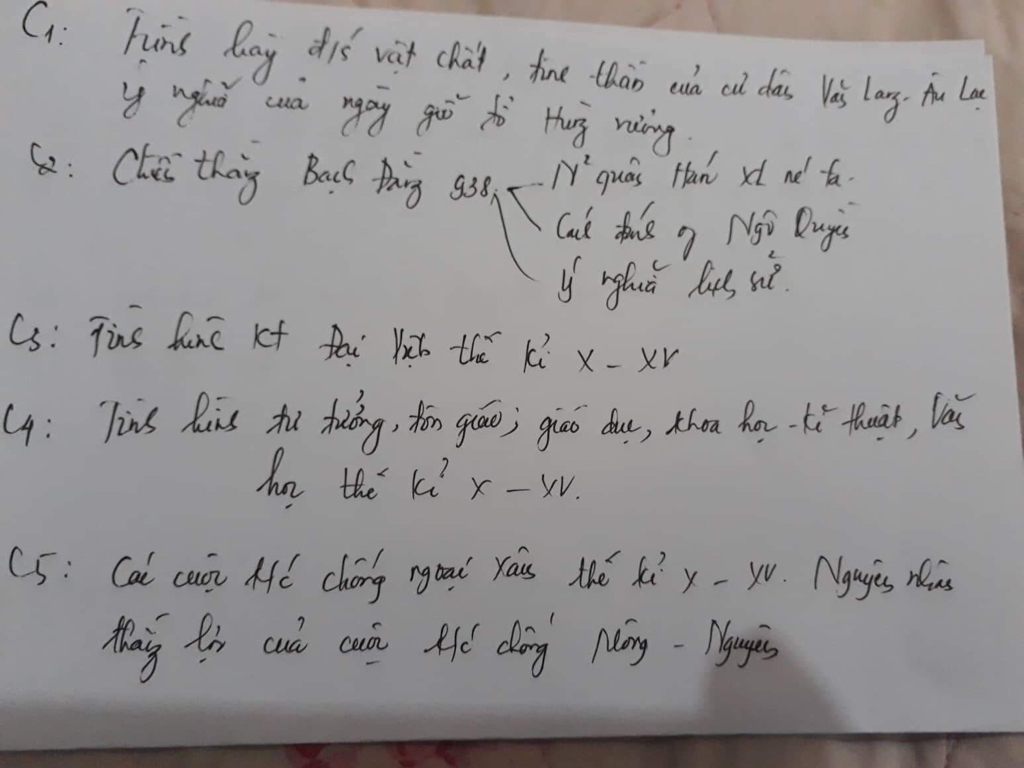 C1: Trình bày đ/s vật chất, tinh thần của cư dân Văn Lang - Âu Lạc
Ý nghĩa của ngày giỗ tổ Hùng Vương.
C2: Chiến thắng Bạch Đằng 938, N² quân Hán XL nc ta.
Cách đánh of Ngô Quyền
Ý nghĩa lịch sử.
C3: Tình hình KT Đại Việt thế kỉ X - XV
C4: Tình hình tư tưởng, tôn giáo; giáo dục, khoa học - kĩ thuật, Văn
học thế kỉ X - XV.
C5: Các cuộc k/c chống ngoại xâm thế kỉ X - XV. Nguyên nhân
thắng lợi của cuộc k/c chống Mông - Nguyên